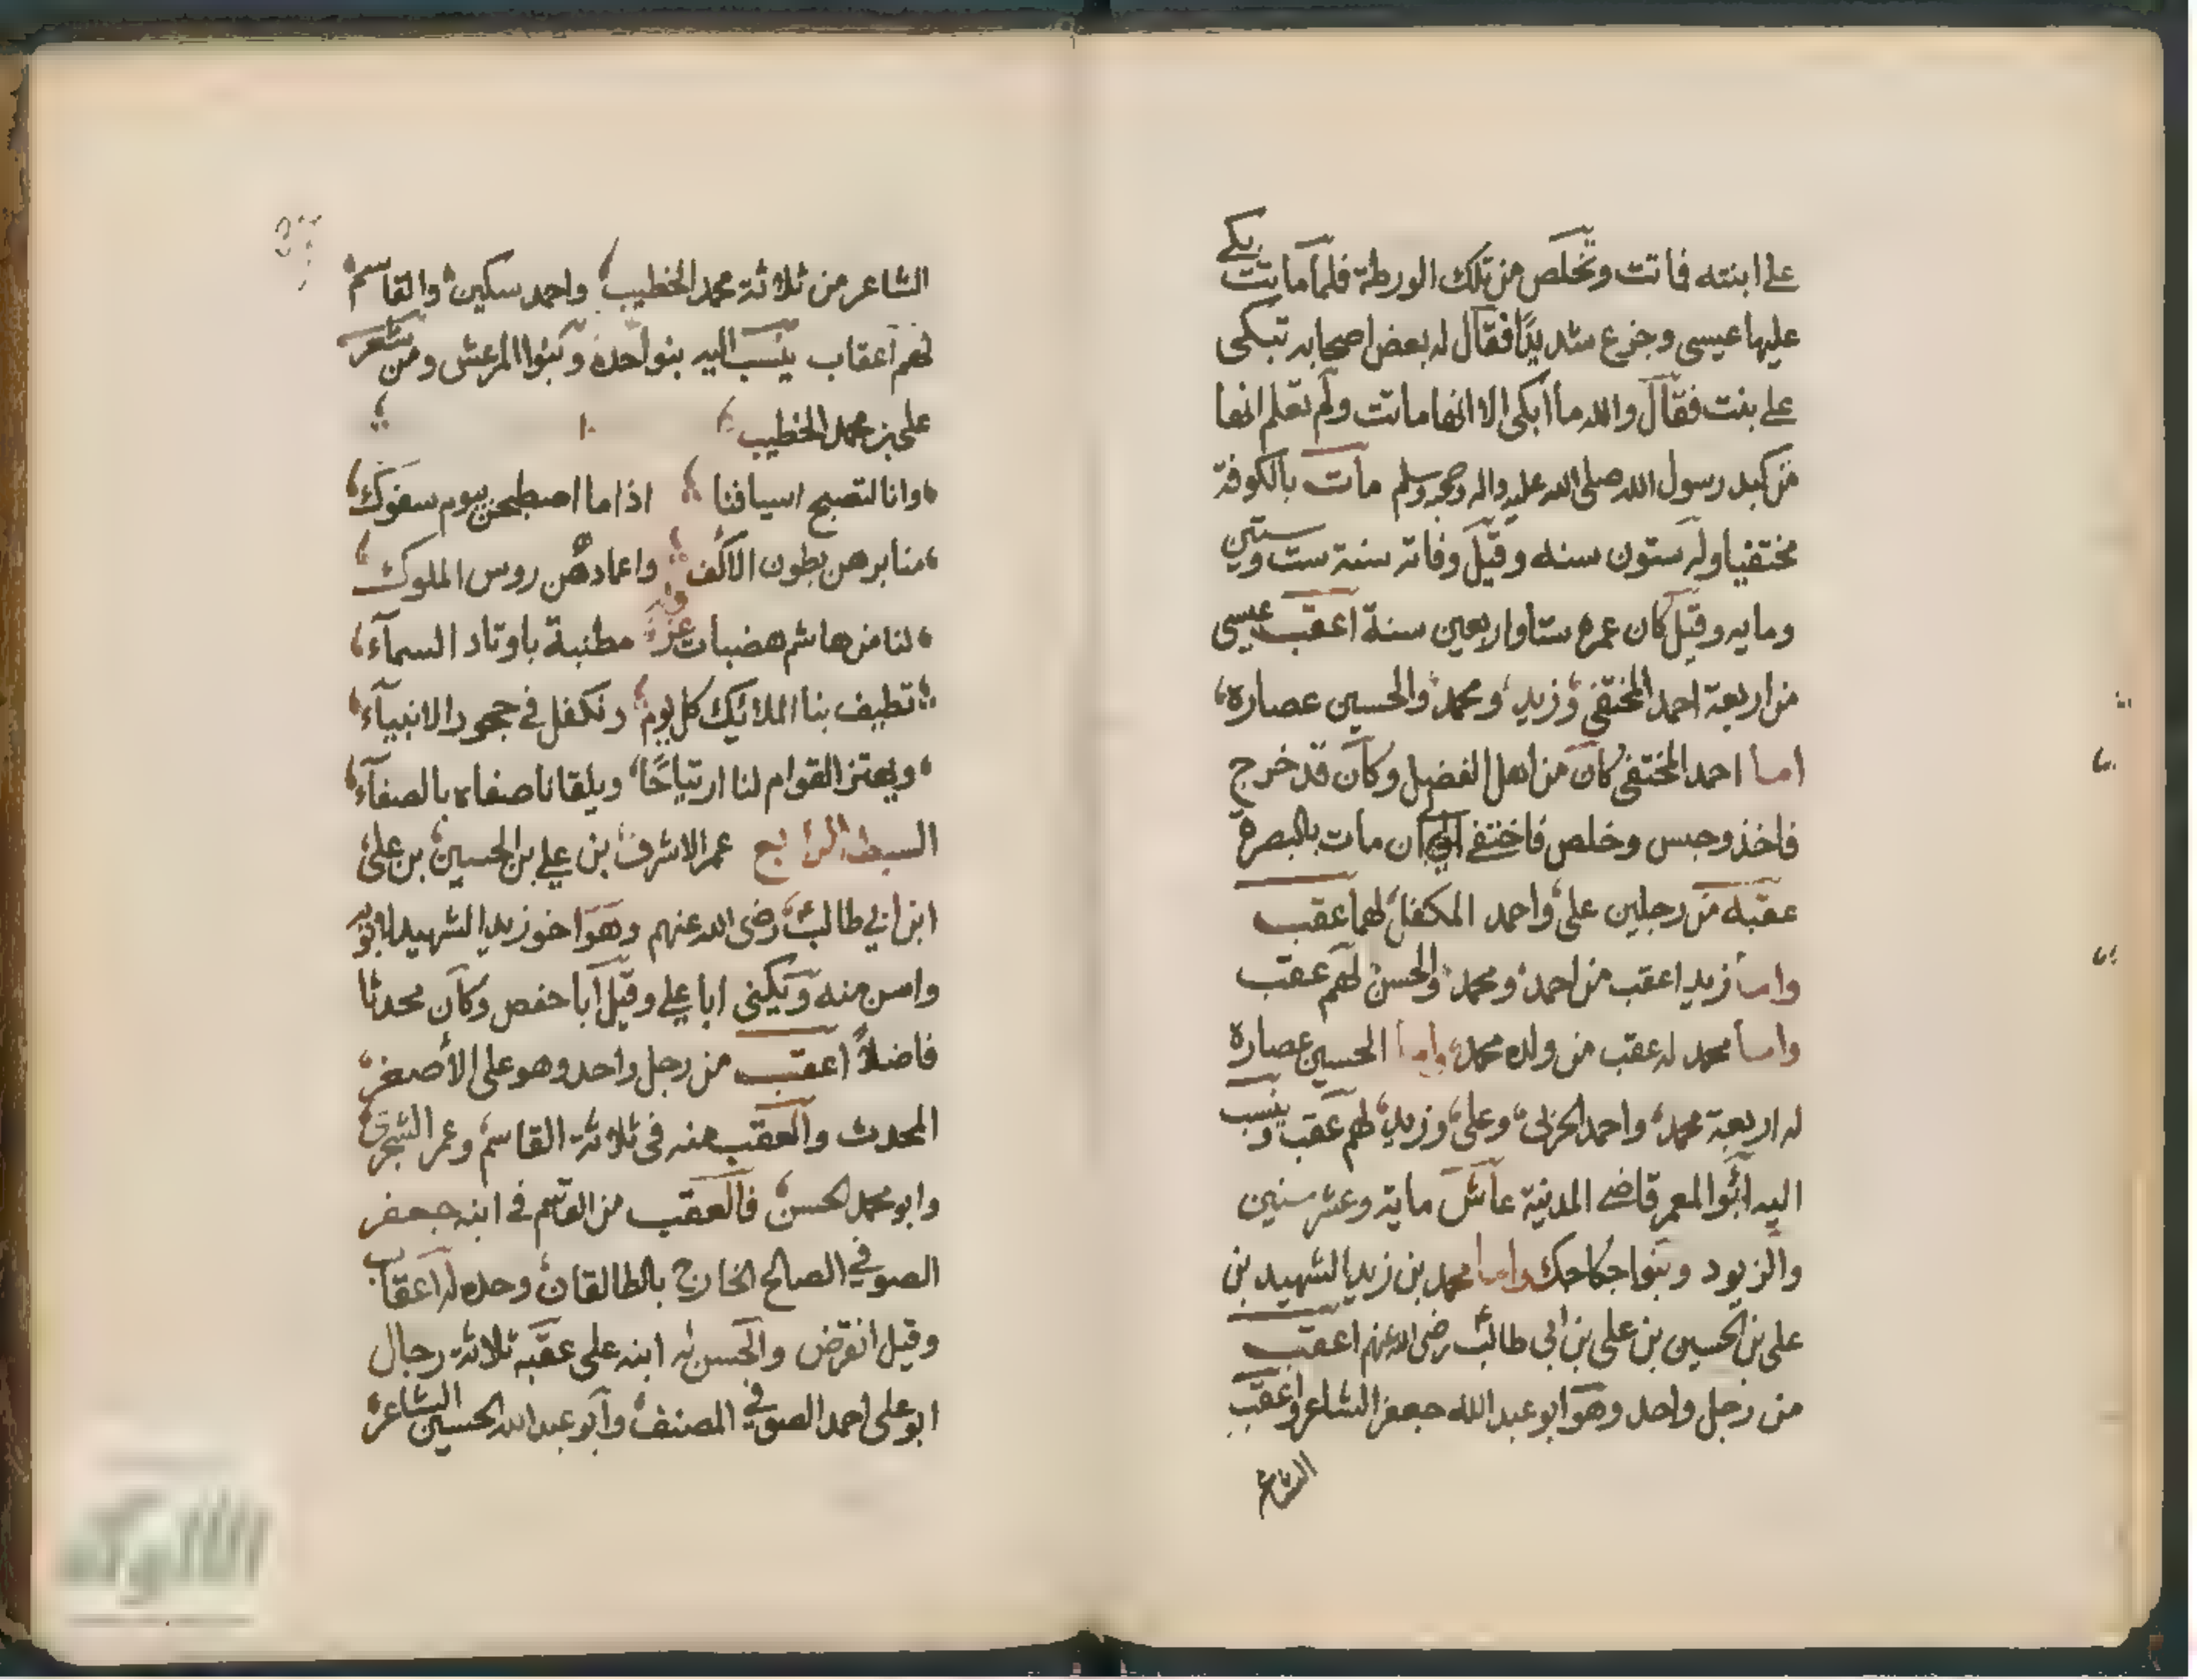 على ابنته فماتت وتخلص من تلك الورطة فلما ماتت بكى
عليها عيسى وجزع شديدًا فقال له بعض اصحابه تبكى
على بنت فقال والله ما ابكى الا انها ماتت ولم تعلم انها
من كبد رسول الله صلى الله عليه واله وصحبه وسلم مات بالكوفة
مختفيا وله ستون سنه وقيل وفاته سنة ست وستين
ومايه وقيل كان عمره ستا واربعين سنة اعقب عيسى
من اربعة احمد المختفى وزيد ومحمد والحسين عصارة
اما احمد المختفى كان من اهل الفضل وكان قد خرج
فاخذ وحبس وخلص فاختفى الى ان مات بالبصرة
عقبه من رجلين على واحمد المكفل لهما عقب
واما زيد اعقب من احمد ومحمد والحسن لهم عقب
واما محمد له عقب من ولده محمد واما الحسين عصارة
له اربعة محمد واحمد الحزبى وعلى وزيد لهم عقب وينسب
اليه ابوا المعمر قاضى المدينة عاش ماية وعشر سنين
والزيود وبنوا حكاحك واما محمد بن زيد الشهيد بن
على بن الحسين بن على بن ابى طالب رضى الله عنهم اعقب
من رجل واحد وهو ابو عبد الله جعفر الشاعر واعقب
الشاعر
الشاعر من ثلاثة محمد الخطيب واحمد سكين والقاسم
لهم اعقاب ينسب اليه بنو احدة وبنوا المرعش ومن شعر
على بن محمد الخطيب
وانا لتصبح اسيافنا اذا ما اصطبحن بيوم سفوك
منابرهن بطون الاكف واغمادهن روس الملوك
وله
لنا من هاشم هضبات عز مطنبة باوتاد السماء
تطيف بنا الملائك كل يوم ونكفل فى حجور الانبياء
ويهتز القوام لنا ارتياحًا ويلقانا صفاه بالصفاء
السبط الرابع عمر الاشرف بن على بن الحسين بن على
ابن ابى طالب رضى الله عنهم وهو اخو زيد الشهيد لابويه
واسن منه ويكنى ابا على وقيل ابا حفص وكان محدثا
فاضلاً اعقب من رجل واحد وهو على الأصغر
المحدث والعقب منه فى ثلاثة القاسم وعمر الشجرى
وابو محمد الحسن فالعقب من القاسم فى ابنه جعفر
الصوفى الصالح الخارج بالطالقان وحده له اعقاب
وقيل انقرض والحسن له ابنه على عقبه ثلاثة رجال
ابو على احمد الصوفى المصنف وابو عبد الله الحسين الشاعر
الألوكة